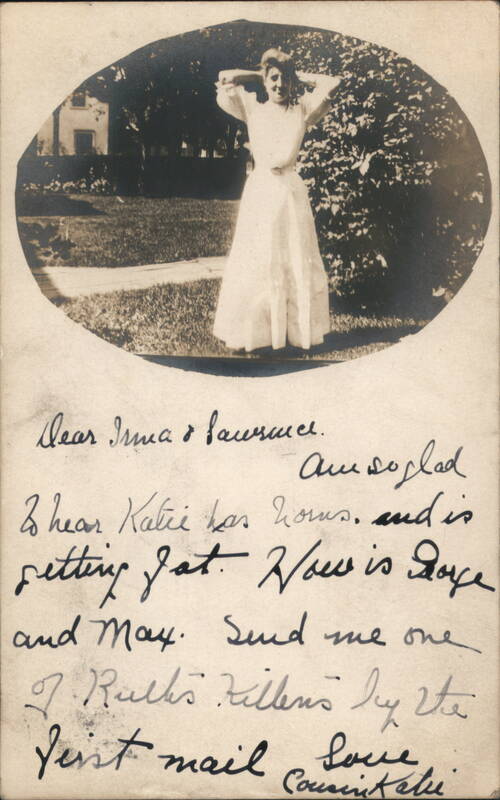 Dear Irma & Lawrence.
Am so glad
to hear Katie has horns. and is
getting fat. How is George
and Max. Send me one
of Ruth's Kittens by the
first mail Love
Cousin Katie